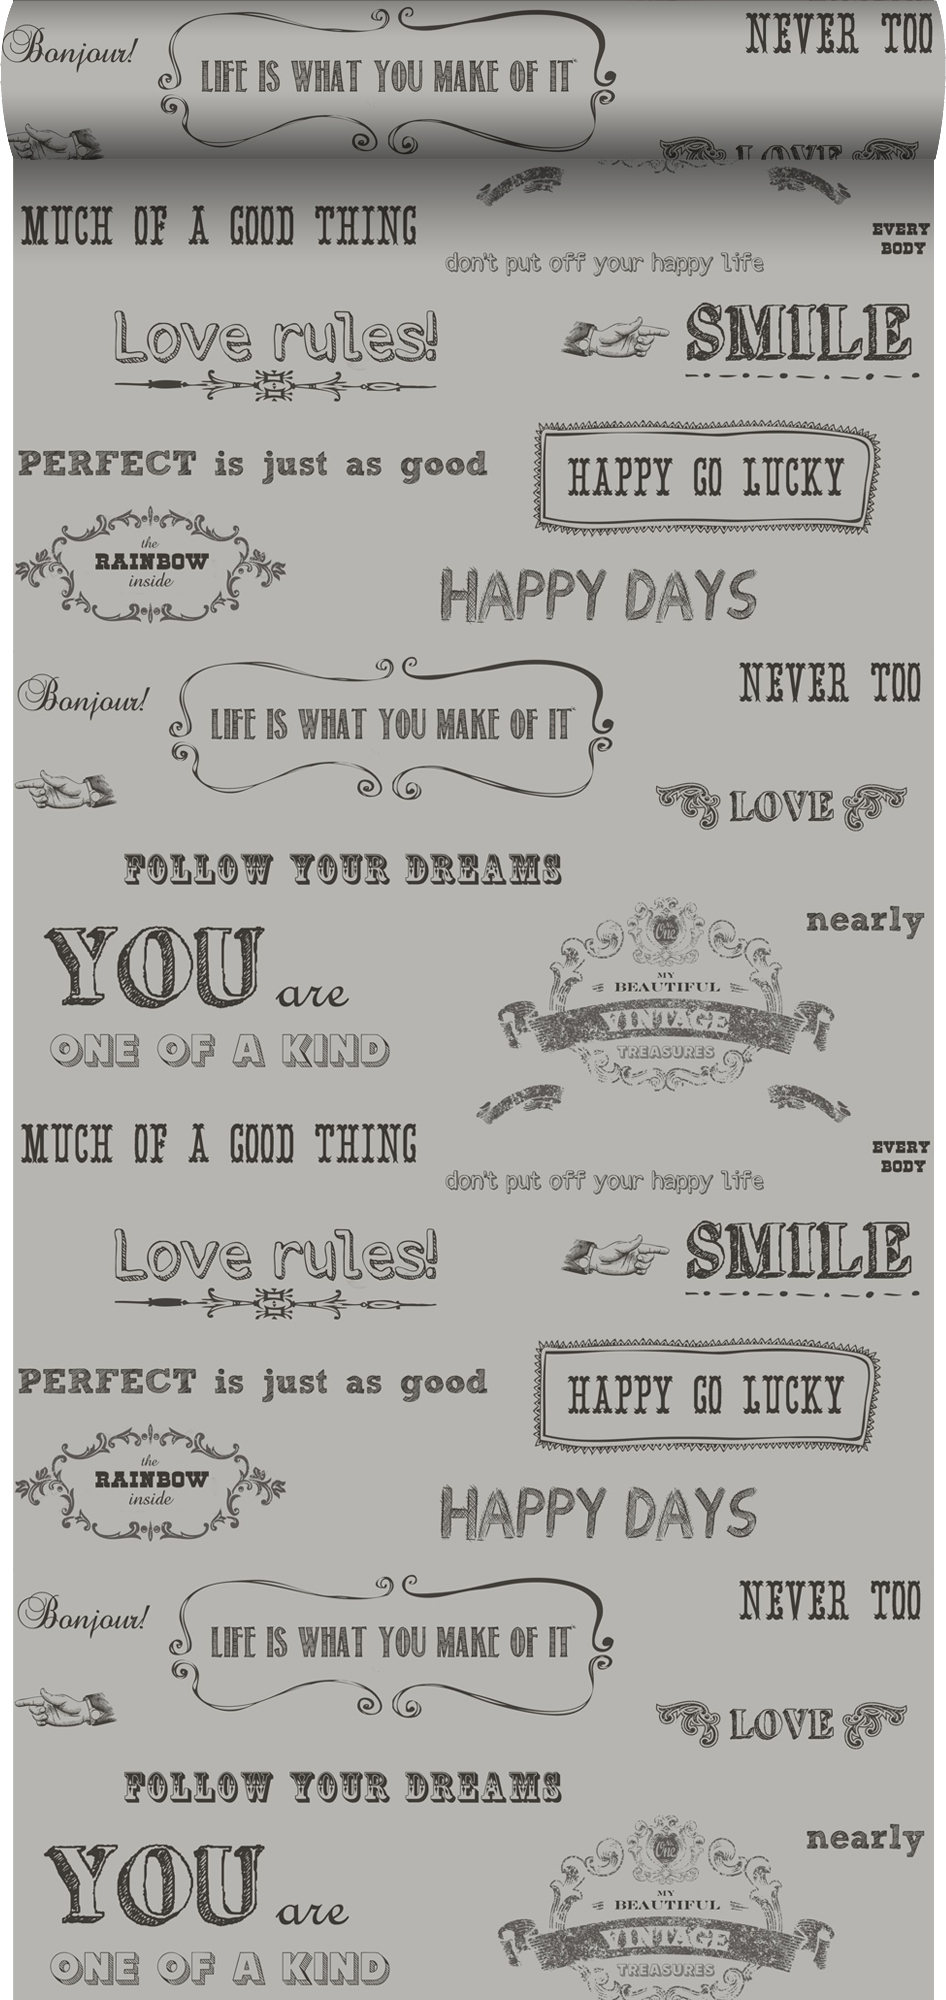 Bonjour!
LIFE IS WHAT YOU MAKE OF IT
NEVER TOO
LOVE
MUCH OF A GOOD THING
EVERY
BODY
don't put off your happy life
Love rules!
SMILE
PERFECT is just as good
HAPPY GO LUCKY
the
RAINBOW
inside
HAPPY DAYS
Bonjour!
LIFE IS WHAT YOU MAKE OF IT
NEVER TOO
LOVE
FOLLOW YOUR DREAMS
nearly
YOU are
ONE OF A KIND
One
MY
BEAUTIFUL
VINTAGE
TREASURES
MUCH OF A GOOD THING
EVERY
BODY
don't put off your happy life
Love rules!
SMILE
PERFECT is just as good
HAPPY GO LUCKY
the
RAINBOW
inside
HAPPY DAYS
Bonjour!
LIFE IS WHAT YOU MAKE OF IT
NEVER TOO
LOVE
FOLLOW YOUR DREAMS
nearly
YOU are
ONE OF A KIND
One
MY
BEAUTIFUL
VINTAGE
TREASURES